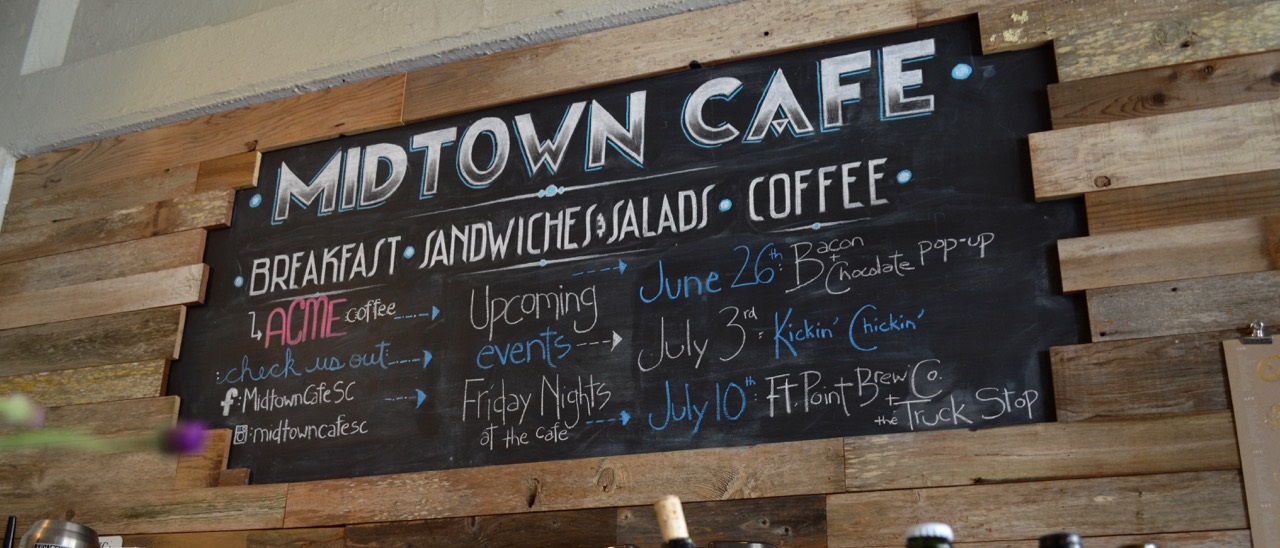 MIDTOWN CAFE
BREAKFAST • SANDWICHES & SALADS • COFFEE
ACME coffee
check us out:
f: MidtownCafeSC
: midtowncafesc
Upcoming
events
Friday Nights
at the cafe
June 26th: Bacon + Chocolate POP-UP
July 3rd: Kickin' Chickin'
July 10th: Ft. Point Brew Co.
+ the Truck Stop